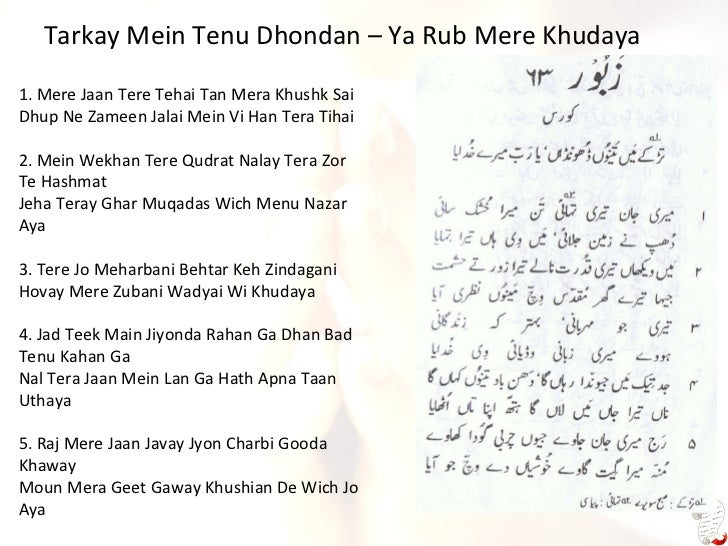 Tarkay Mein Tenu Dhondan – Ya Rub Mere Khudaya
1. Mere Jaan Tere Tehai Tan Mera Khushk Sai
Dhup Ne Zameen Jalai Mein Vi Han Tera Tihai
2. Mein Wekhan Tere Qudrat Nalay Tera Zor
Te Hashmat
Jeha Teray Ghar Muqadas Wich Menu Nazar
Aya
3. Tere Jo Meharbani Behtar Keh Zindagani
Hovay Mere Zubani Wadyai Wi Khudaya
4. Jad Teek Main Jiyonda Rahan Ga Dhan Bad
Tenu Kahan Ga
Nal Tera Jaan Mein Lan Ga Hath Apna Taan
Uthaya
5. Raj Mere Jaan Javay Jyon Charbi Gooda
Khaway
Moun Mera Geet Gaway Khushian De Wich Jo
Aya
زَبُوْر ۶۳
کورس
تڑکے مَیں تَینُوں ڈھونڈاں، یا رَبّ میرے خُدایا
۱ میری جان تیری تہائی تَن میرا خُشک سائی
دُھپ نے زمین جلائی، مَیں وِی ہاں تیرا تہایا
۲ مَیں ویکھاں تیری قُدرت نالے تیرا زور تے حشمت
جیہا تیرے گھر مُقدّس وِچ مَینُوں نظری آیا
۳ تیری جو مہربانی بہتر کہ زندگانی
ہووے میری زبانی وڈیائی وِی خُدایا
۴ جد تیک مَیں جیوندا رہاں گا، دَھن باد تَینُوں کہاں گا
ناں تیرا جاں مَیں لاں گا ہتھ اپنا تاں اُٹھایا
۵ رَج میری جان جاوے جیوں چربی گُودا کھاوے
مُنہ میرا گیت گاوے خُوشیاں دے وِچ جو آیا
تڑکے : صبح سویرے تہائی : پیاسی